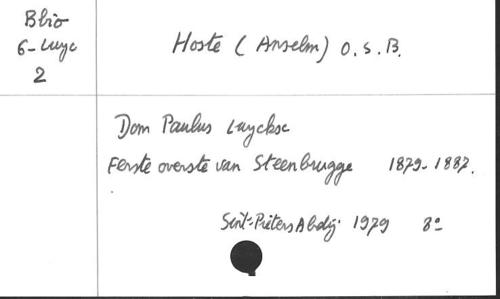 Bbio
6-Luyc
2
Hoste (Anselm) O.S.B.
Dom Paulus Luyckx
Eerste overste van Steenbrugge 1879-1887.
Sint-Pieters Abdij 1979 8º